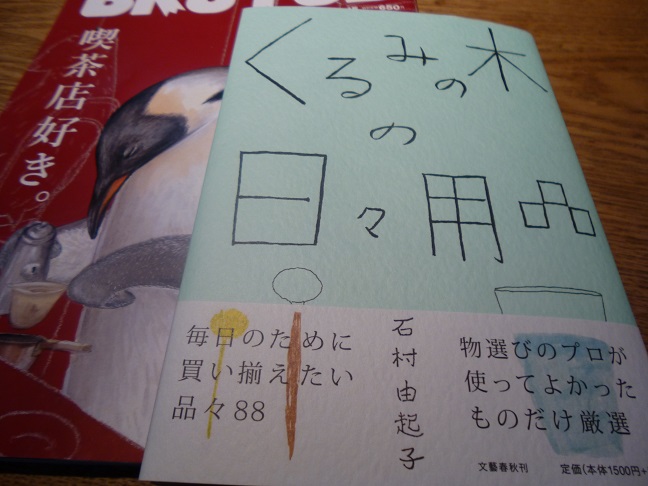 BRUTUS
650
喫茶店好き。
くるみの木
の
日々用品
毎日のために
買い揃えたい
品々88
石村由起子
物選びのプロが
使ってよかった
ものだけ厳選
文藝春秋刊
定価(本体1500円+